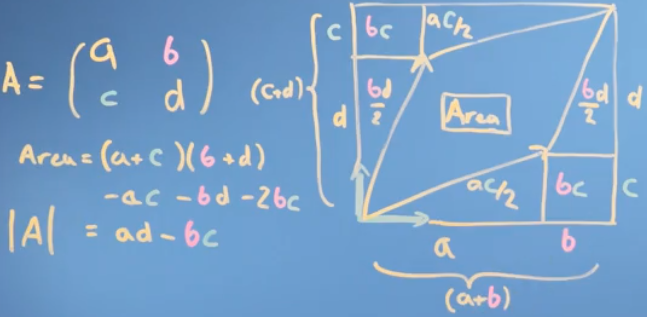 A = ( a b
c d )
Area = (a+c)(b+d)
-ac -bd -2bc
|A| = ad - bc
(c+d)
c bc ac/2
d bd/2 bd/2 d
Area
ac/2 bc c
a b
(a+b)